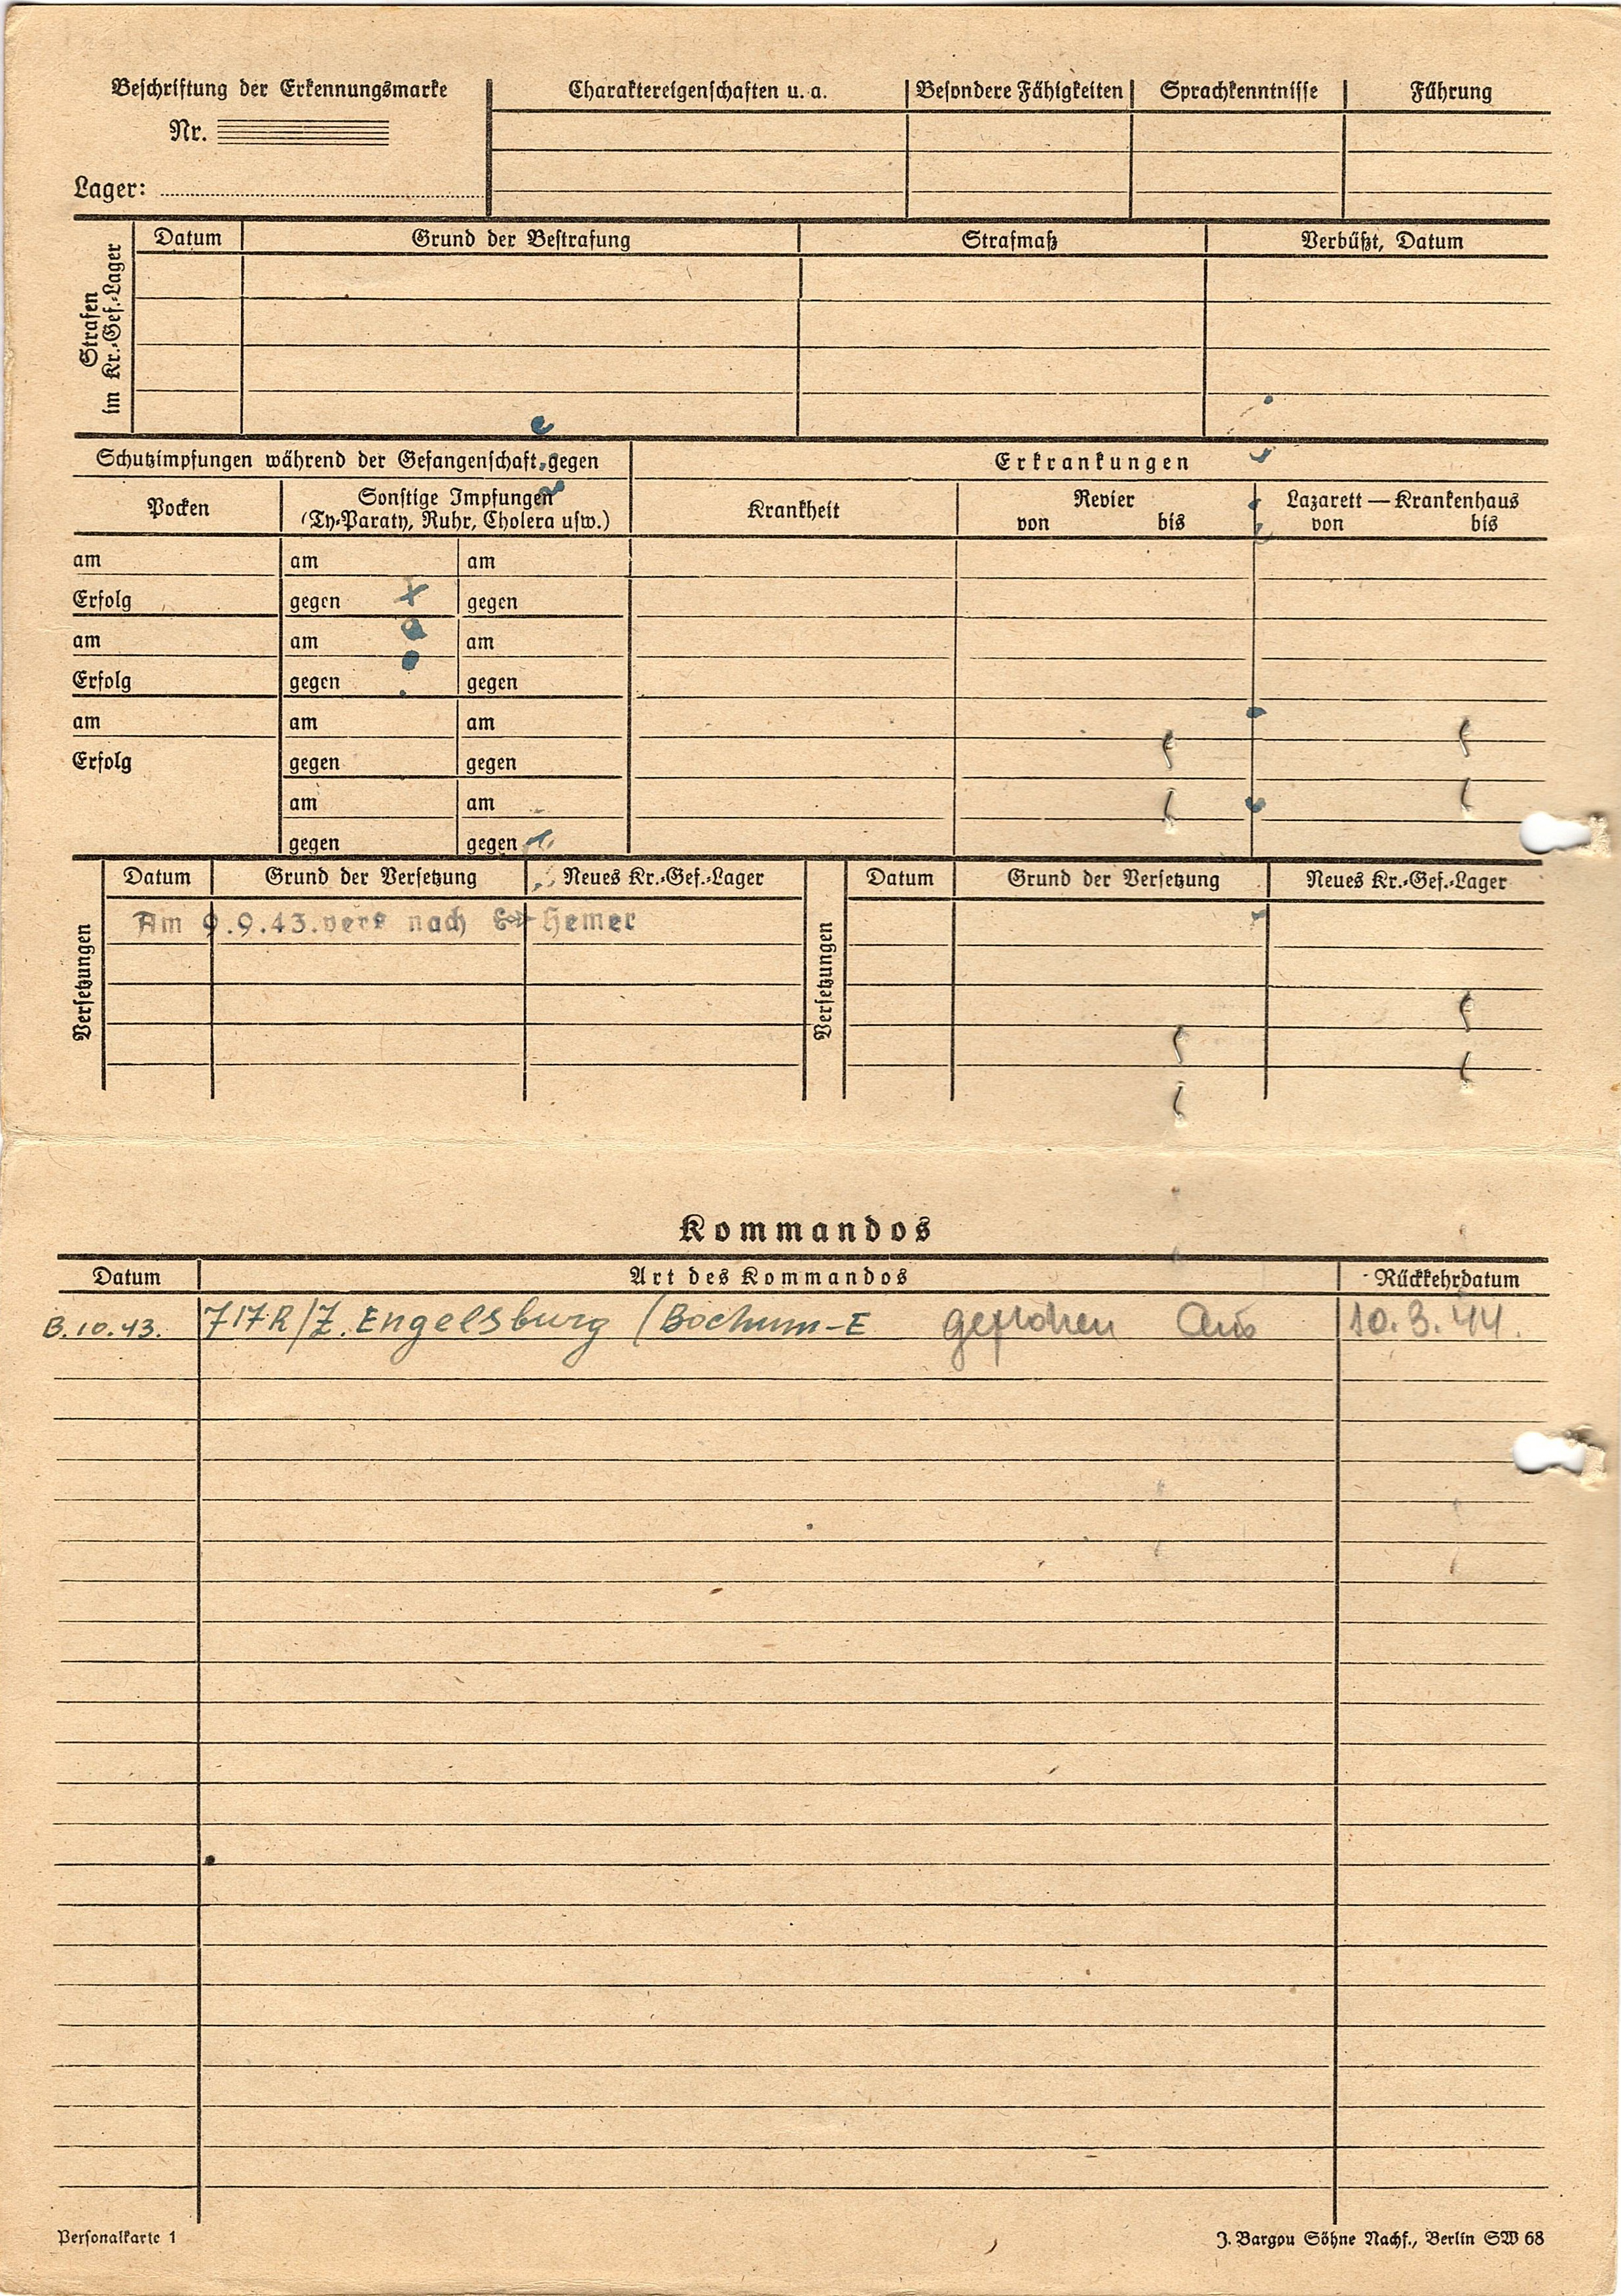 Beschriftung der Erkennungsmarke
Nr.
Lager:
Charaktereigenschaften u. a. Besondere Fähigkeiten Sprachkenntnisse Führung
Strafen
im Kr.-Gef.-Lager
Datum Grund der Bestrafung Strafmaß Verbüßt, Datum
Schutzimpfungen während der Gefangenschaft gegen
Erkrankungen
Pocken
Sonstige Impfungen
(Ty-Paraty, Ruhr, Cholera usw.)
Krankheit
Revier
von bis
Lazarett — Krankenhaus
von bis
am am am
Erfolg gegen gegen
am am am
Erfolg gegen gegen
am am am
Erfolg gegen gegen
am am
gegen gegen
Versetzungen
Datum Grund der Versetzung Neues Kr.-Gef.-Lager
Am 9.9.43. vers nach Hemer
Versetzungen
Datum Grund der Versetzung Neues Kr.-Gef.-Lager
Kommandos
Datum Art des Kommandos Rückkehrdatum
10.43. 717R/Z. Engelsburg (Bochum-E geflohen Am 10.3.44.
Personalkarte 1
J. Bargou Söhne Nachf., Berlin SW 68